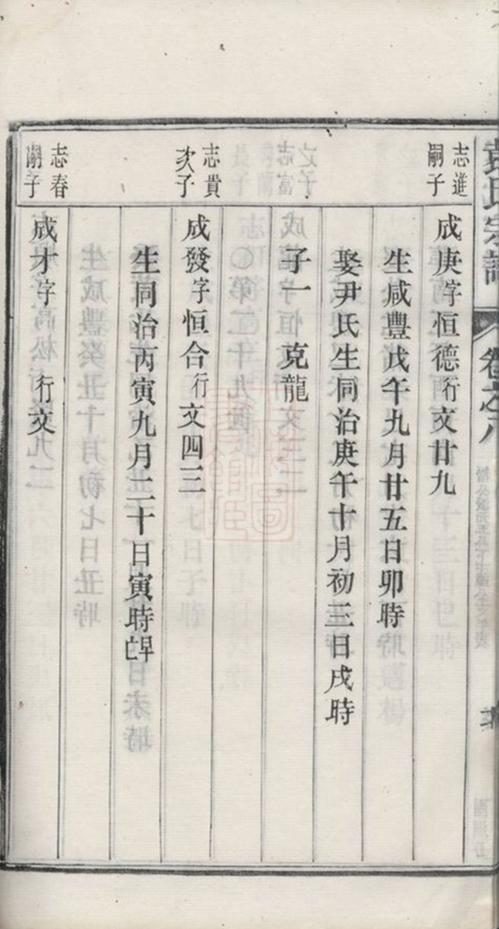 袁氏宗譜 卷之八
志進嗣子
成庚字恒德行文廿九
生咸豐戊午九月廿五日卯時
娶尹氏生同治庚午十月初三日戌時
子一 克龍
志貴次子
成發字恒合行文四三
生同治丙寅九月二十日寅時
志春嗣子
成才字 行文